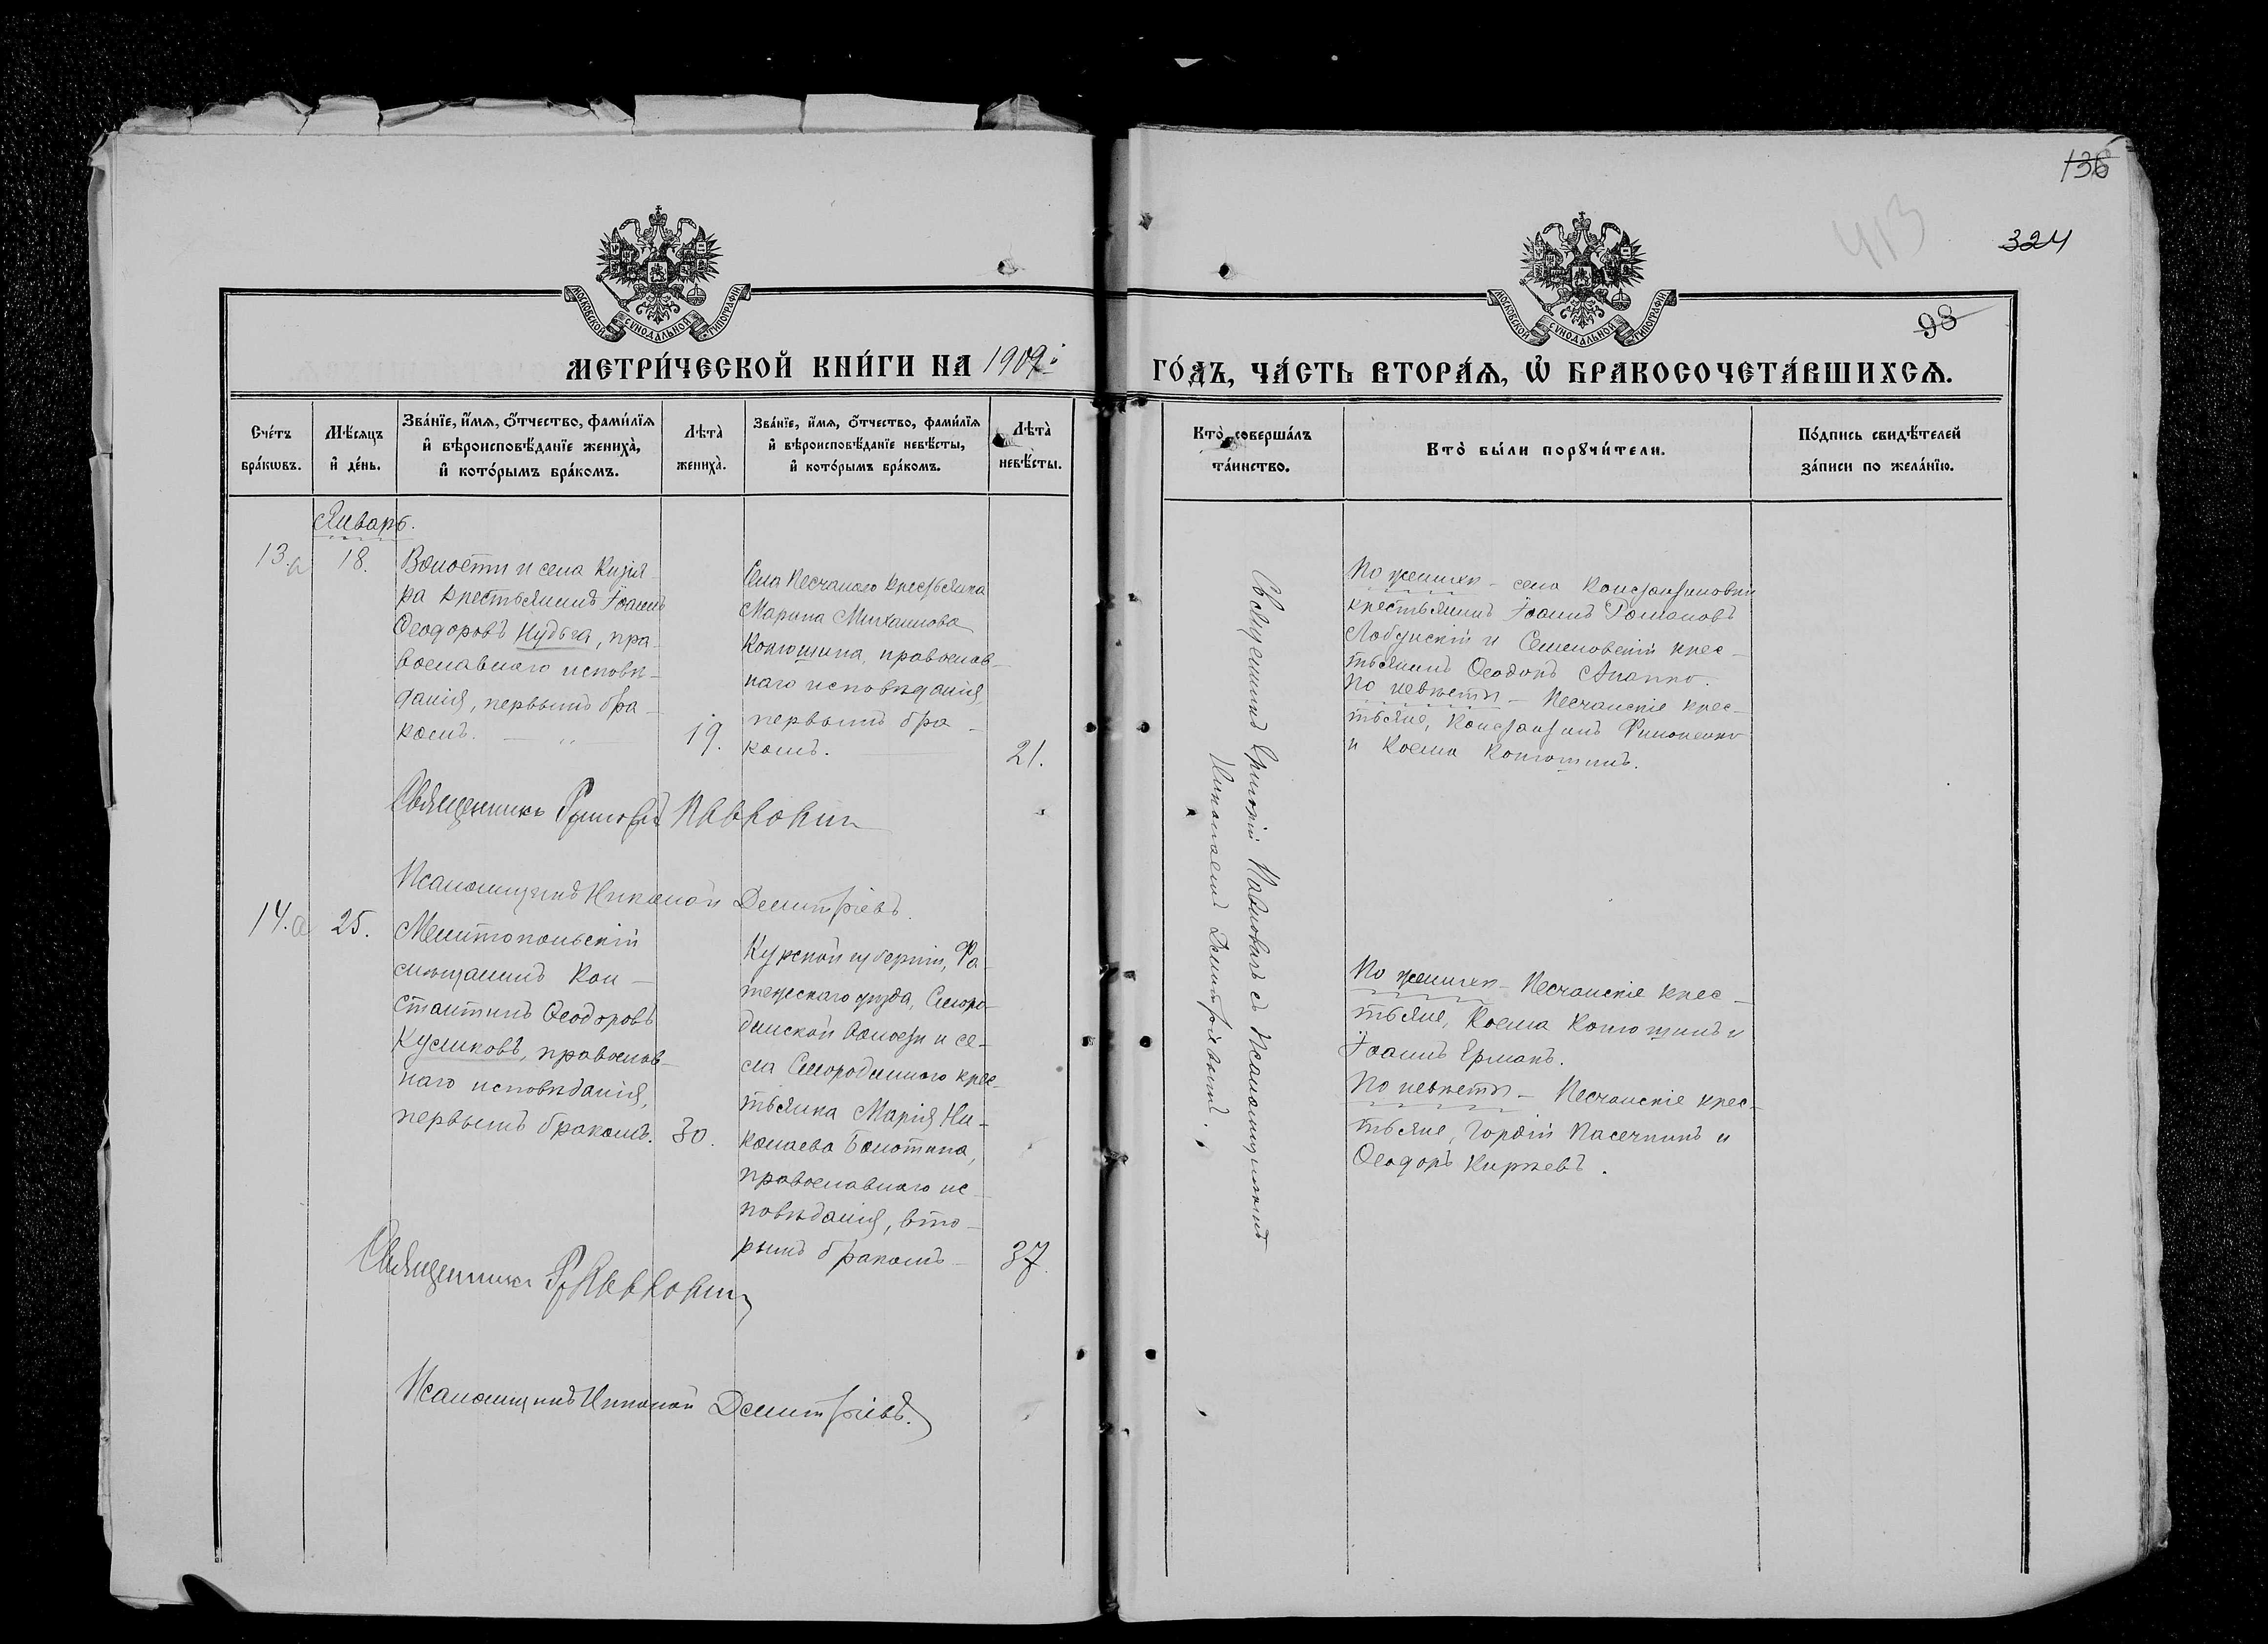 136
413
324
98
МОСКОВСКОЙ СѴНОДАЛЬНОЙ ТИПОГРАФІИ
МОСКОВСКОЙ СѴНОДАЛЬНОЙ ТИПОГРАФІИ
МЕТРИ́ЧЕСКОЙ КНИ́ГИ НА 1909
ГО́ДЪ, ЧА́СТЬ ВТОРА́Ѧ, Ѡ҆ БРАКОСОЧЕТА́ВШИХСѦ.
Сче́тъ бра́кѡвъ.
Мѣ́сѧцъ и҆ де́нь.
Зва́нїе, и҆́мѧ, ѻ҆́тчество, фамі́лїѧ
и҆ вѣроисповѣ́данїе жениха̀,
и҆ кото́рымъ бра́комъ.
Лѣта̀ жениха̀.
Зва́нїе, и҆́мѧ, ѻ҆́тчество, фамі́лїѧ
и҆ вѣроисповѣ́данїе невѣ́сты,
и҆ кото́рымъ бра́комъ.
Лѣта̀ невѣ́сты.
Кто̀ соверша́лъ та́инство.
Кто̀ бы́ли порꙋчи́тели.
По́дпись свидѣ́телей за́писи по жела́нїю.
Январь.
13.а
18.
Волости и села Кизія-
ра крестьянинъ Іоаннъ
Ѳеодоровъ Нудьга, пра-
вославнаго исповѣ-
данія, первымъ бра-
комъ.
19.
Села Песчанаго крестьянка
Марина Михаилова
Конюшина, православ-
наго исповѣданія,
первымъ бра-
комъ.
21.
Священникъ Григорій Павловичъ съ Псаломщикомъ
Николаемъ Димитріевымъ.
По женихѣ - села Константиновки
крестьянинъ Іоаннъ Романовъ
Лобунскій и Семеновскій крес-
тьянинъ Ѳеодоръ
По невѣстѣ - Песчанскіе крес-
тьяне, Константинъ Филоненко
и Косма Конюшинъ.
Священникъ Григорій
Псаломщикъ Николай Димитріевъ.
14.а
25.
Мелитопольскій
мѣщанинъ Кон-
стантинъ Ѳеодоровъ
Куликовъ, православ-
наго исповѣданія,
первымъ бракомъ.
30.
Курской губерніи, Фа-
тежскаго уѣзда, Сморо-
динской волости и се-
ла Смородиннаго крес-
тьянка Марія Ни-
колаева Болотина,
православнаго ис-
повѣданія, вто-
рымъ бракомъ
37.
По женихѣ - Песчанскіе крес-
тьяне, Косма Конюшинъ и
Іоаннъ Ермакъ.
По невѣстѣ - Песчанскіе крес-
тьяне, Гордій Пасечникъ и
Ѳеодоръ Киріевъ.
Священникъ
Псаломщикъ Николай Димитріевъ.